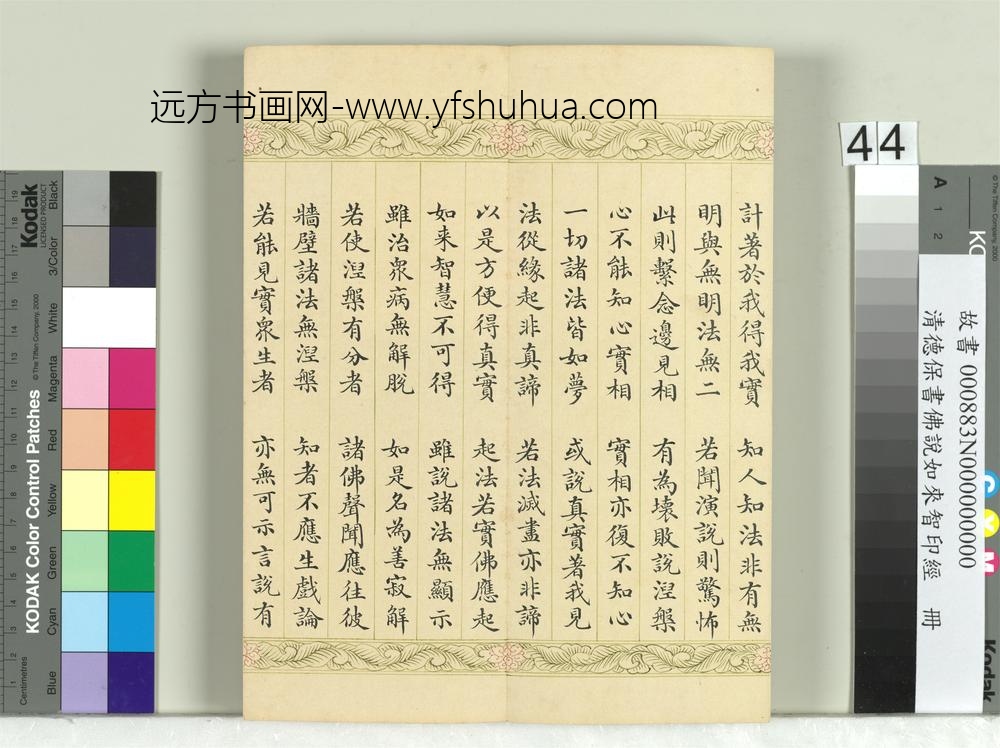 远方书画网-www.yfshuhua.com
計著於我得我實　知人知法非有無
明與無明法無二　若聞演說則驚怖
此則繫念邊見相　有為壞敗說涅槃
心不能知心實相　實相亦復不知心
一切諸法皆如夢　或說真實著我見
法從緣起非真諦　若法滅盡亦非諦
以是方便得真實　起法若實佛應起
如来智慧不可得　雖說諸法無顯示
雖治眾病無解脫　如是名為善寂解
若使涅槃有分者　諸佛聲聞應往彼
牆壁諸法無涅槃　知者不應生戲論
若能見實眾生者　亦無可示言說有
44
故書 000883N000000000
清德保書佛說如來智印經　冊
KODAK Color Control Patches
© The Tiffen Company, 2000
Kodak
LICENSED PRODUCT
Centimetres
Blue
Cyan
Green
Yellow
Red
Magenta
White
3/Color
Black
1 2 3 4 5 6 7 8 9 10 11 12 13 14 15 16 17 18 19
A 1 2
© The Tiffen Company, 2000
KO
C
Y
M
Kodak